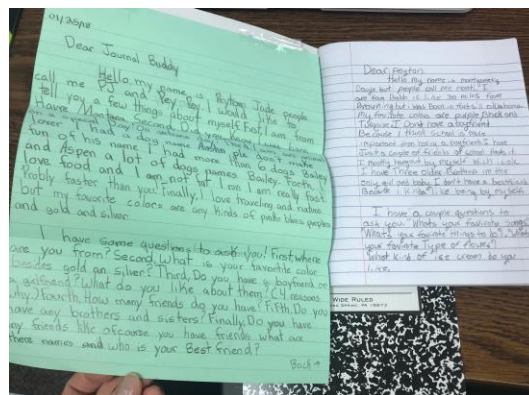 01/25/18
Dear Journal Buddy
Hello, my name is Peyton Jade people
call me PJ and Pey Pey I would like to
tell you a few things about myself First, I am from
Havre Montana Second,
I had a
fun of his name I had more than 6 dogs Bailey
and Aspen a lot of dogs names Bailey Tooth, I
love food and I am not fat I ran I am really fast
Probly faster than you! Finally, I love traveling and nature
but my favorite colors are any kinds of pinks blues purples
and gold and silver.
I have some questions to ask you! First where
are you from? Second, What is your favorite color
besides gold an silver? Third, Do you have a boyfriend or
girlfriend? What do you like about them? (4 reasons
why.) Fourth, How many friends do you have? Fifth, Do you
have any brothers and sisters? Finally, Do you have
any friends like ofcourse you have friends what are
there names and who is your Best friend?
Back→
Dear Peyton,
Hello my name is montgomery
Dauge but people call me mont. I
are from Babb is like 30 miles from
Browning but I was Born in Oklahoma
My favorite colors are purple Black and
I Dont have a boyfriend
Because I think School is more
important than having a boyfriend. I have
Just a couple of friends
I mostly hangout by myself
I have Three older Brothers im the
only girl and baby I don't have a bestfriend
Because I like being by my self
I have a couple questions to
ask you. "Whats your favorite song"
"What's your favorite things to do?" "What's
your favorite Type of flower?"
"What kind of ice cream do you
like.
WIDE RULED